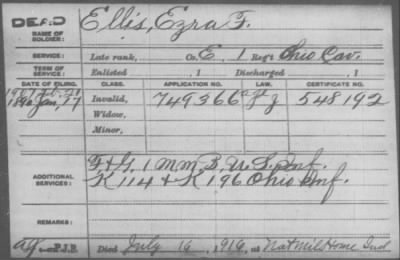 DEAD
Ellis, Ezra F.
NAME OF SOLDIER:
SERVICE: Late rank, Co. E, 1 Reg't Ohio Cav.
TERM OF SERVICE: Enlisted , 1 Discharged , 1
DATE OF FILING. CLASS. APPLICATION NO. LAW. CERTIFICATE NO.
1890 Jan, 17 Invalid, 749366 548192
Widow,
Minor,
ADDITIONAL SERVICES: F & G, 1 M M, B, U. S. Inf.
K 114 & K 196 Ohio Inf.
REMARKS:
P.J.P. Died July 16, 1916, at Nat Mil Home Ind